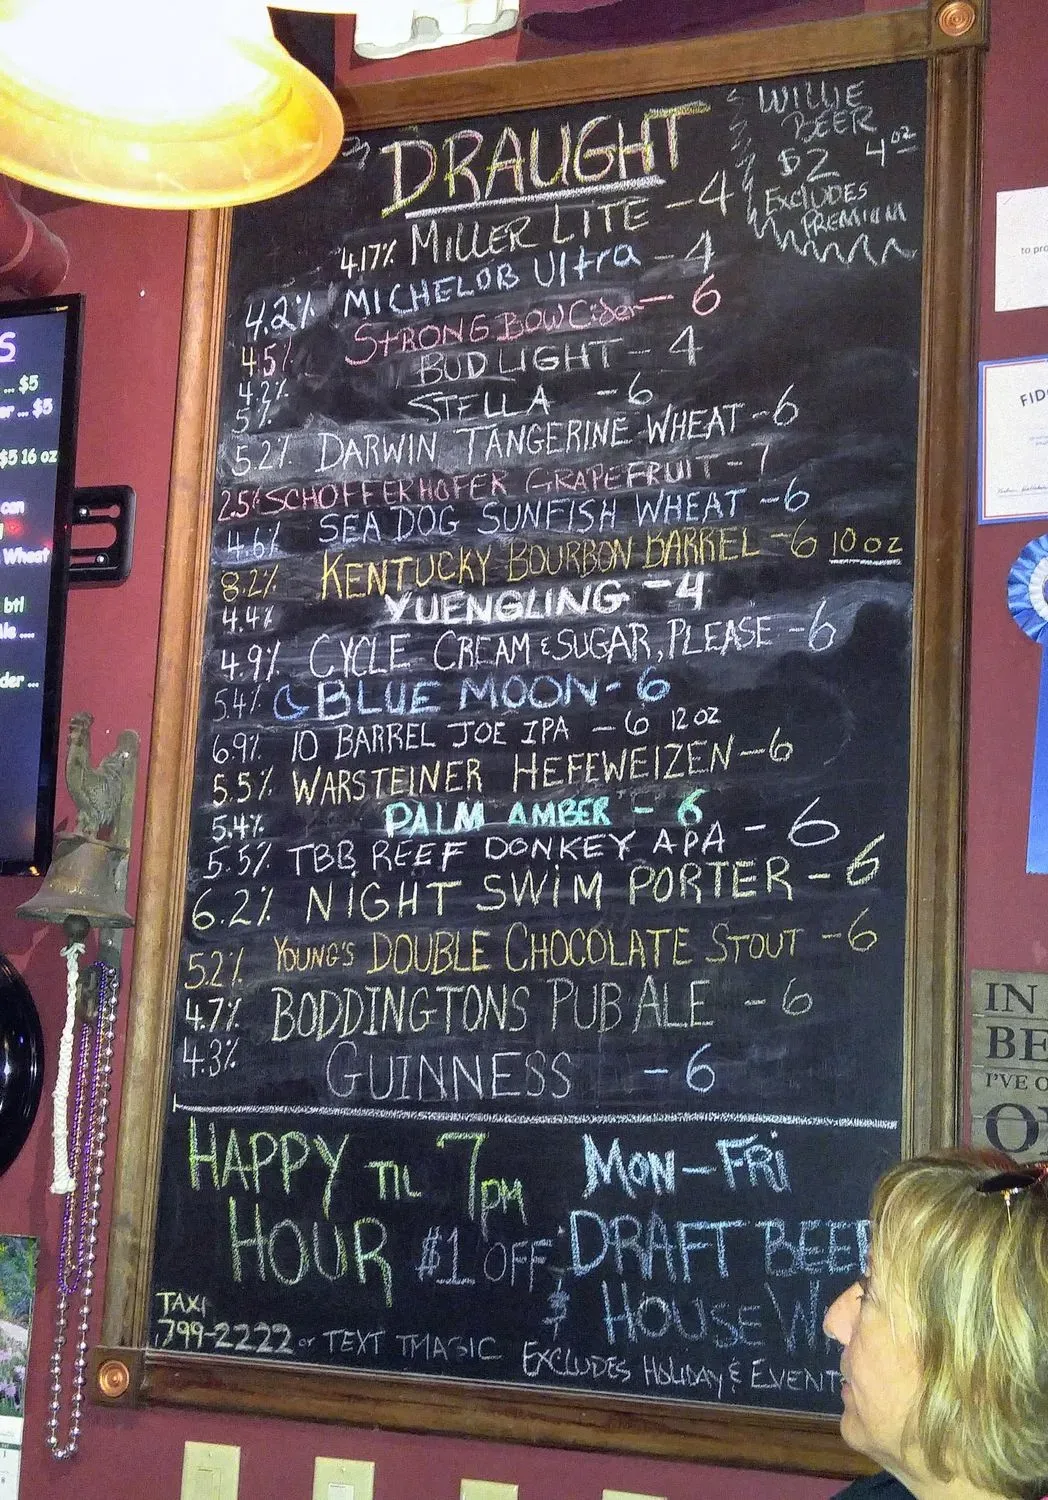 DRAUGHT
WILLIE
BEER
$2 4 oz
EXCLUDES
PREMIUM
4.17% MILLER LITE - 4
4.2% MICHELOB Ultra - 4
4.5% STRONGBOW Cider - 6
4.2% BUD LIGHT - 4
5% STELLA - 6
5.2% DARWIN TANGERINE WHEAT - 6
2.5% SCHOFFERHOFER GRAPEFRUIT - 7
4.6% SEA DOG SUNFISH WHEAT - 6
8.2% KENTUCKY BOURBON BARREL - 6 10 oz
4.4% YUENGLING - 4
4.9% CYCLE CREAM & SUGAR, PLEASE - 6
5.4% BLUE MOON - 6
6.9% 10 BARREL JOE IPA - 6 12 OZ
5.5% WARSTEINER HEFEWEIZEN - 6
5.4% PALM AMBER - 6
5.5% TBB REEF DONKEY APA - 6
6.2% NIGHT SWIM PORTER - 6
5.2% YOUNG'S DOUBLE CHOCOLATE STOUT - 6
4.7% BODDINGTONS PUB ALE - 6
4.3% GUINNESS - 6
HAPPY TIL 7pm MON-FRI
HOUR $1 OFF DRAFT BEER
& HOUSE W
TAXI
799-2222 or TEXT TMAGIC EXCLUDES HOLIDAY & EVENT
S
... $5
er ... $5
$5 16 oz
can
Wheat
btl
der ...
to pro
FIDO
IN
BE
I'VE O
O